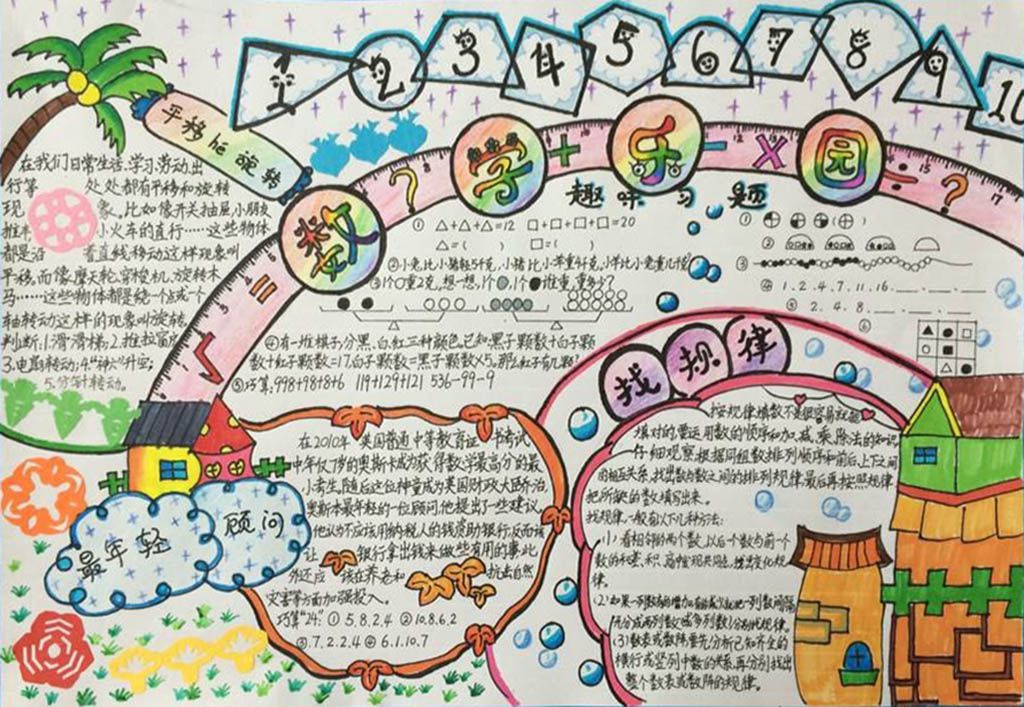 1 2 3 4 5 6 7 8 9 10
平移和旋转
数学乐园
? + - × ÷ ?
= √
在我们日常生活、学习、劳动出
行等 处处都有平移和旋转
现 象。比如像开关抽屉,小朋友
推 小火车的直行……这些物体
都是沿 着直线移动这样现象叫
平移。而像摩天轮,穿梭机,旋转木
马……这些物体都是绕一个点或一个
轴转动这样的现象叫旋转
判断:1.滑滑梯 2.推拉窗户
3.电扇转动;4."神六"升空;
5.分针转动。
趣味习题
① △+△+△=12 □+□+□+□=20
△=( ) □=( )
②小兔比小猪轻5千克,小猪比小羊重4千克,小羊比小兔重几千克
③1个○重2克,想一想,1个 ,1个●谁重,重多少?
④有一堆棋子,分黑、白、红三种颜色。已知:黑子颗数+白子颗
数+红子颗数=17.白子颗数=黑子颗数×5,那么红子有几颗?
⑤巧算:998+98+8+6 119+129+121 536-99-9
① ( )
②
③
④ 1. 2. 4. 7. 11. 16.
⑤ 2. 4. 8.
⑥
最年轻 顾问
在2010年,英国普通中等教育证 书考试
中年仅7岁的奥斯卡成为获得数学最高分的最
小考生,随后这位神童成为英国财政大臣乔治,
奥斯本最年轻的一位顾问,他提出了一些建议。
他认为不应该用纳税人的钱资助银行,反而该
让 银行拿出钱来做些有用的事,此
外还应 该在养老和 抗击自然
灾害等方面加强投入。
巧算"24." ① 5.8.2.4 ② 10.8.6.2
③.7.2.2.4 ④ 6.1.10.7
找规律
按规律填数不是很容易就能
填对的,需运用数的顺序和加、减、乘、除法的知识
仔细观察,根据同组数排列顺序和前后、上下之间
的相互关系,找出数与数之间的排列规律,最后再按照规律
把所缺的数填写出来。
找规律,一般有以下几种方法:
(1)看相邻的两个数,以后个数与前一个
数的和差、积、商中发现共同点,想出变化规
律。
(2)如果一列数有的增加,有的减少,就把一列数间隔
开分成两列数(或多列数)分别找规律。
(3)数表或数阵要先分析已知齐全的
横行或竖列中数的关系,再分别找出
整个数表或数阵的规律。